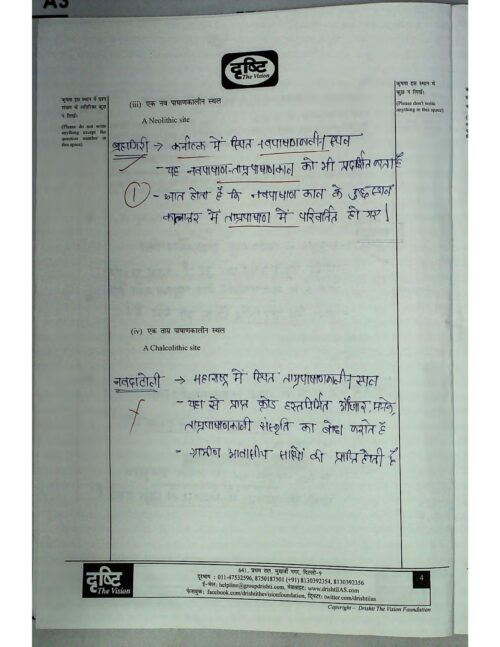 A3
दृष्टि
The Vision
कृपया इस स्थान में प्रश्न
संख्या के अतिरिक्त कुछ
न लिखें।
(Please do not write
anything except the
question number in
this space)
कृपया इस स्थान में
कुछ न लिखें।
(Please don't write
anything in this space)
(iii) एक नव पाषाणकालीन स्थल
A Neolithic site
ब्रह्मगिरी → कर्नाटक में स्थित नवपाषाणकालीन स्थल
- यह नवपाषाण-ताम्रपाषाणकाल को भी प्रदर्शित करता है
1
- ज्ञात होता है कि नवपाषाण काल के कुछ स्थल
कालान्तर में ताम्रपाषाण में परिवर्तित हो गए।
(iv) एक ताम्र पाषाणकालीन स्थल
A Chalcolithic site
नवदाटोली → महाराष्ट्र में स्थित ताम्रपाषाणकालीन स्थल
- यहां से प्राप्त हस्तनिर्मित औजार, मनके,
ताम्रपाषाणकाली संस्कृति का बोध कराते हैं
- ग्रामीण आवासीय साक्ष्यों की प्राप्ति होती है
दृष्टि
The Vision
641, प्रथम तल, मुखर्जी नगर, दिल्ली-9
दूरभाष : 011-47532596, 8750187501 (+91) 8130392354, 8130392356
ई-मेल: helpline@groupdrishti.com, वेबसाइट: www.drishtiIAS.com
फेसबुक: facebook.com/drishtithevisionfoundation, ट्विटर: twitter.com/drishtiias
4
Copyright – Drishti The Vision Foundation